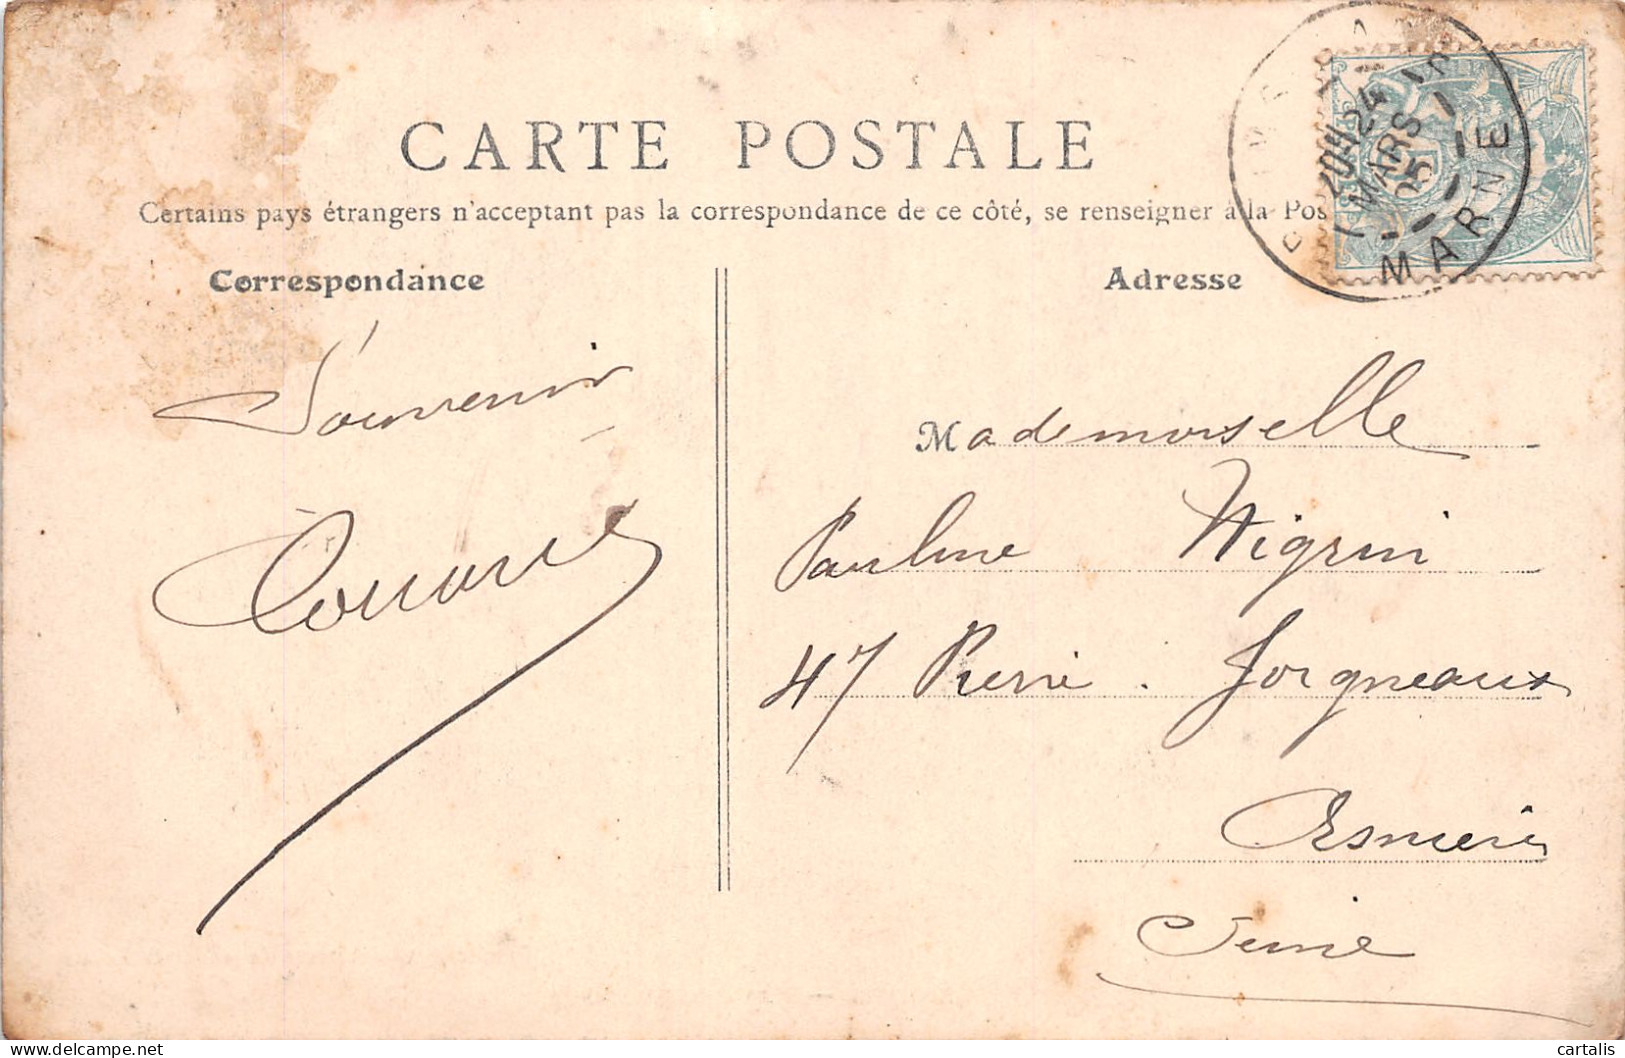 CARTE POSTALE
Certains pays étrangers n'acceptant pas la correspondance de ce côté, se renseigner à la Pos
Correspondance
Adresse
24
MARS
05
MARNE
Souvenir
Mademoiselle
Pauline Nigrin
47 Pierre Joigneaux
Asnieres
Seine
delcampe.net
cartalis